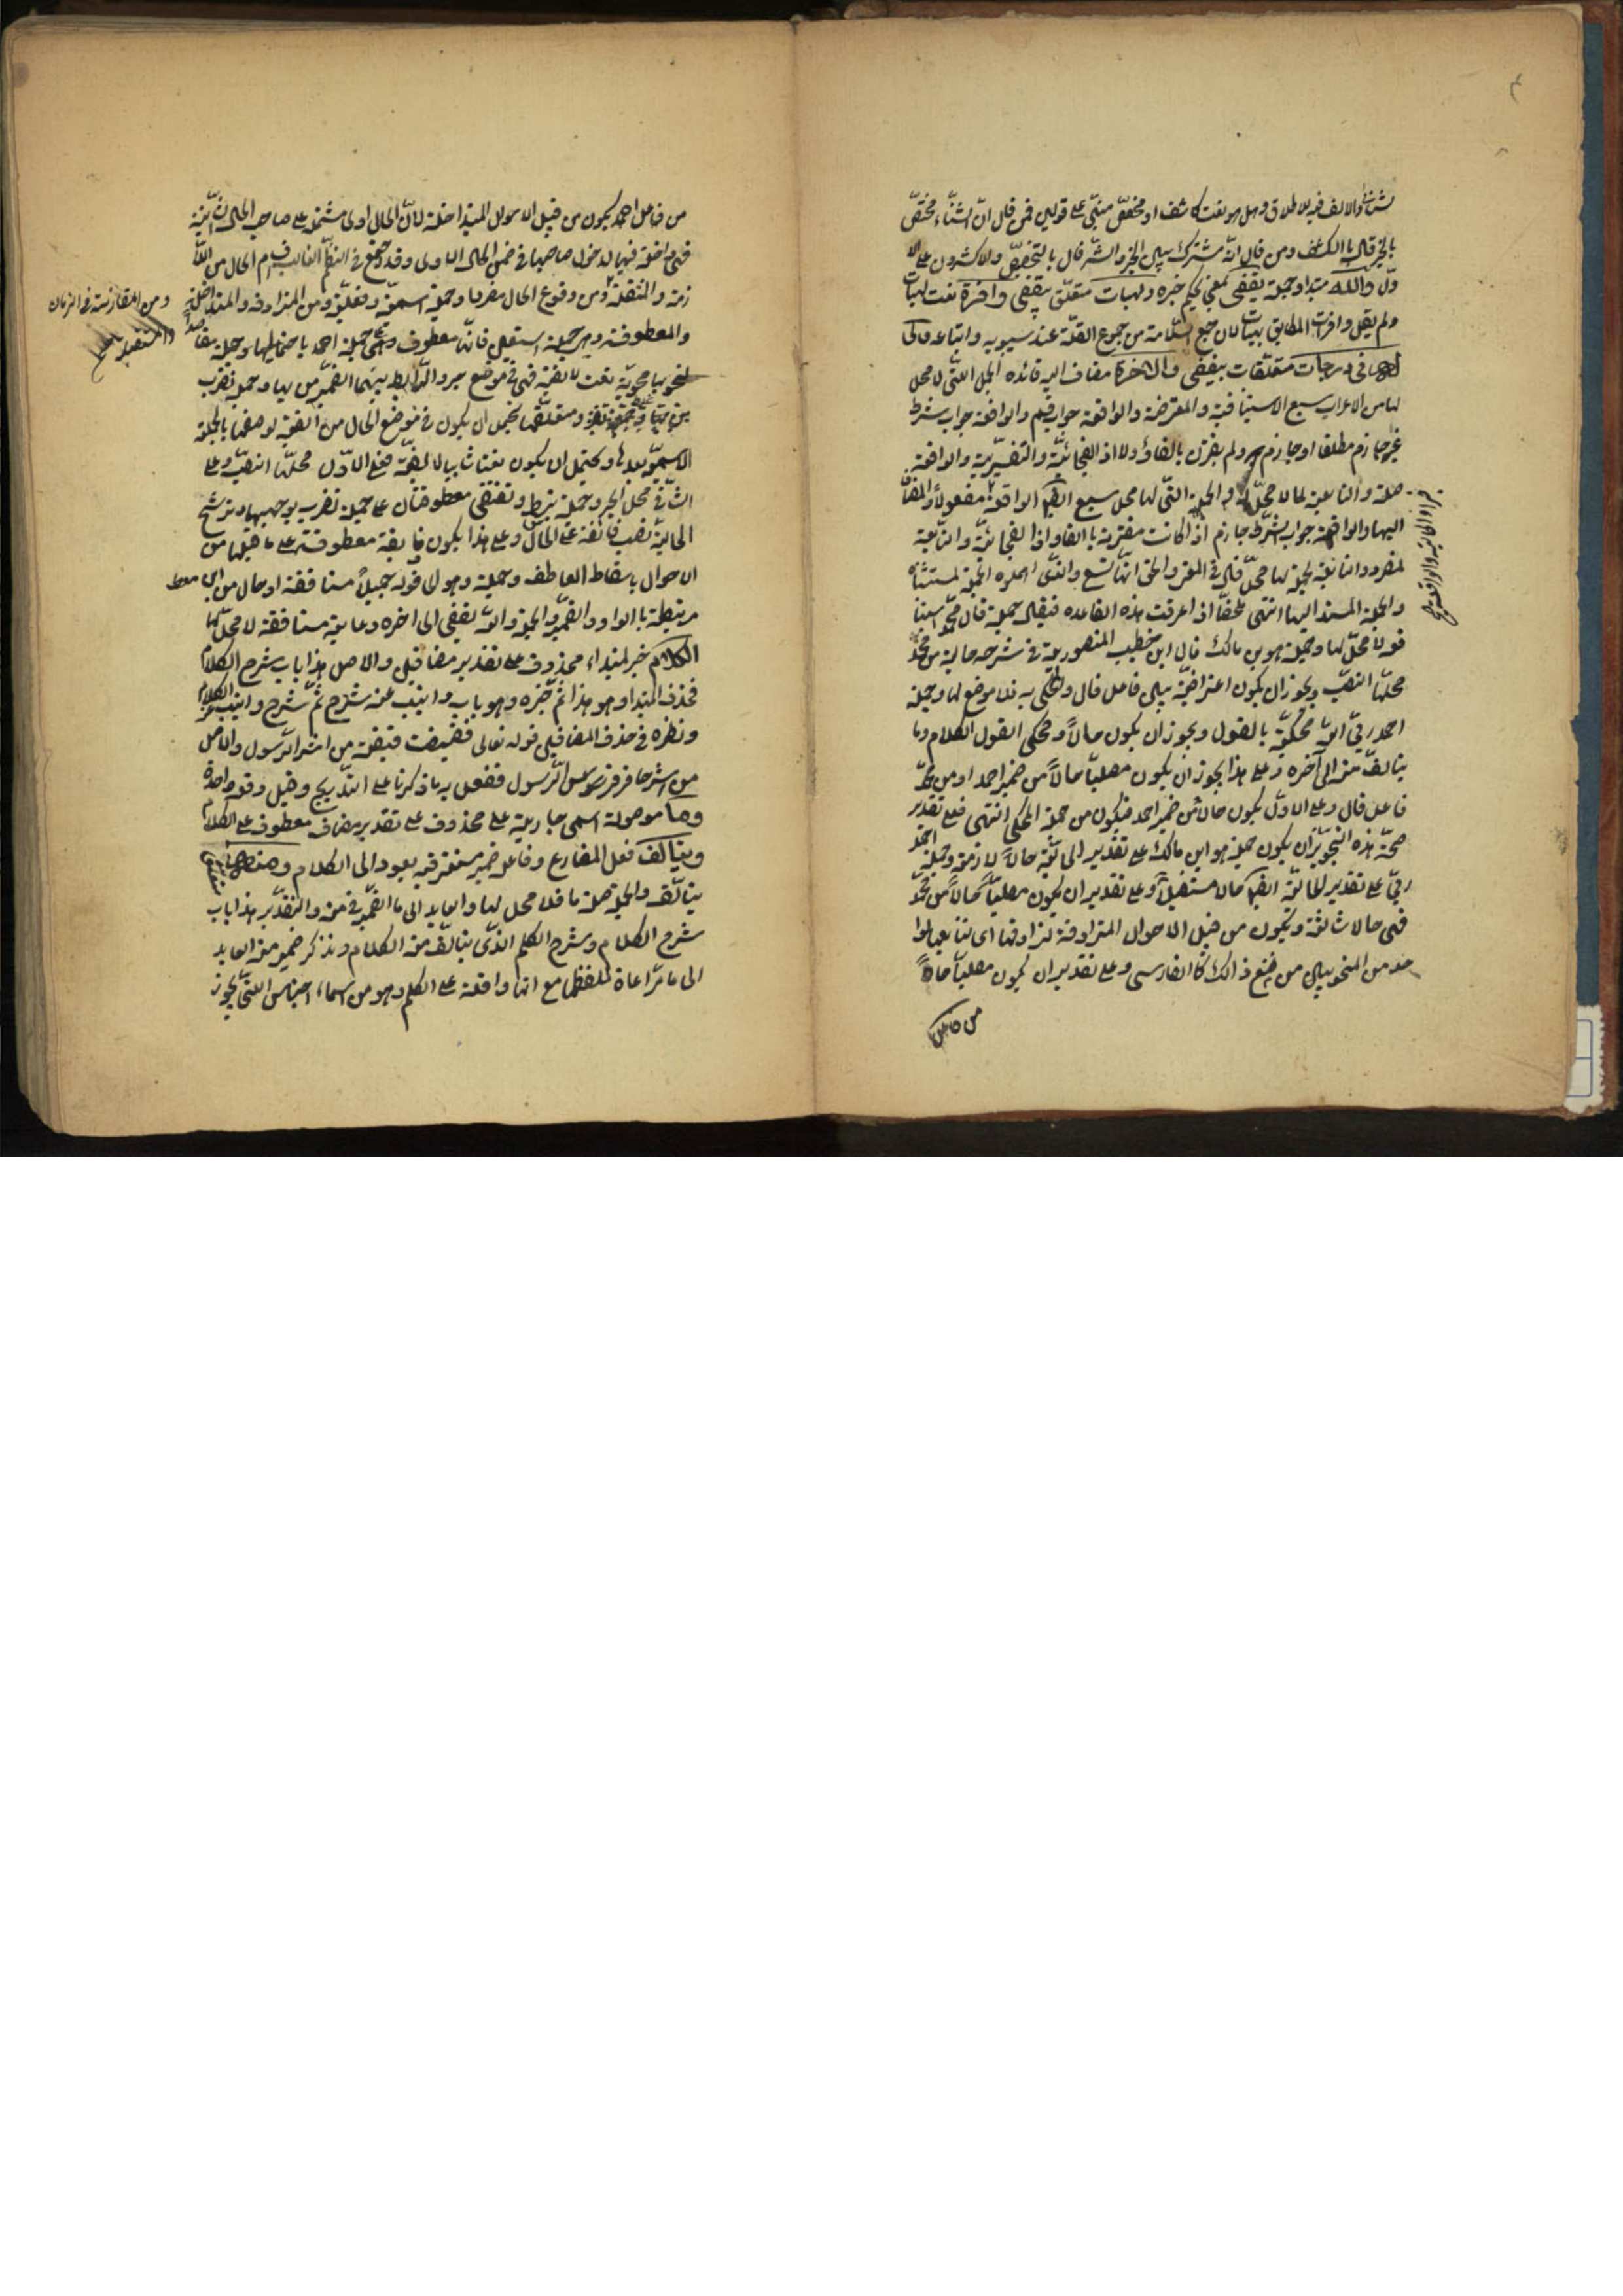 والالف فيه للاطلاق وهل هو نعت كاشف او مخصص مبنى على قولين فمن قال ان الثناء مختص
بالخير قال بالكشف ومن قال انه مشترك بين الخير والشر قال بالتخصيص والاكثرون على الا
ول والله مبتدا وجملة يقضى بمعنى يحكم خبره ولهبات متعلق بيقضى وافرة نعت لهبات
ولم يقل وافرات المطابق لهبات لان جمع السلامة من جموع القلة عند سيبويه واتباعه ولى
فى درجات متعلقات بيقضى والاخرة مضاف اليه فائده الجمل اللتى لا محل
لها من الاعراب سبع الاستينافية والمعترضة والواقعة جواب قسم والواقعة جواب شرط
غير جازم مطلقا او جازم ولم يقترن بالفاء ولا اذ الفجائية والتفسيرية والواقعة
صلة والتابعة لما لا محل له والجمل التى لها محل سبع ايضا الواقعة مفعولا والمضاف
اليها والواقعة جواب شرط جازم اذا كانت مقترنة بالفاء واذا الفجائية والتابعة
لمفرد والتابعة لجملة لها محل قال فى المغنى والحق انها تسع والذى اهملوه الجملة المستثناة
والجملة المسند اليها انتهى ملخصا اذا عرفت هذه القاعده فنقول جملة قال محمد استينا
فيه لا محل لها وجملة هو بن مالك قال ابن خطيب المنصورية فى شرحه حالية من محمد
محلها النصب ويجوز ان يكون اعتراضية بين فاعل قال والمحكى به فلا موضع لها وجملة
احمد ربى الله محكية بالقول ويجوز ان يكون حالا ومحكى القول الكلام وما
يتالف منه الى آخره وعلى هذا يجوز ان يكون مصليا حالا من ضمير احمد او من محمد
فاعل قال وعلى الاول يكون حالا من ضمير احمد فيكون من جملة المحكى انتهى فعلى تقدير
صحة هذه التجويزان يكون جملة هو ابن مالك على تقدير الحالية حالا لازمة وجملة احمد
ربى على تقدير الحالية ايضا حالا مستقبلا وعلى تقدير ان يكون مصليا حالا من محمد
فهى حالا ثالثة ويكون من قبيل الاحوال المترادفة لترادفها اى تتابعها لوا
حد من النحويين من منع ذالك كالفارسى وعلى تقدير ان يكون مصليا حالا
من فاعل
من فاعل احمد يكون من قبيل الاحوال المتداخلة لان الحال اولى مشتملة على صاحب الحال الثانية
فهى داخلة فيها لدخول صاحبها فى ضمن الحال الاولى وقد جمع فى النظم الغالب اقسام الحال من اللا
زمة والمنتقلة ومن وقوع الحال مفردا وجملة اسمية وفعلية ومن المترادفة والمتداخلة
ومن المقارنة فى الزمان
والمستقبلة
والمعطوفة وهى جملة استعين فانها معطوف على جملة احمد باحتماليها وجملة مقاصد
النحو بها محوية نعت لالفية فهى فى موضع جر والرابط بينهما الضمير من بها وجملة تقرب
ومتعلقها يحتمل ان يكون فى موضع الحال من الفية لوصفها بالجملة
الاسمية بعدها ويحتمل ان يكون نعتا ثانيا لالفية فعلى الاول محلها النصب وعلى
الثانى محل الجر وجملة تبسط وتقتضى معطوفتان على جملة تقرب بوجهيها وترشح
الحالية نصب فائقة على الحال وعلى هذا يكون فائقة معطوفة على ما قبلها من
الاحوال باسقاط العاطف وجملة وهو الى قوله جميلا مستانفة او حال من ابن معط
مرتبطة بالواو والضمير والجملة والله يقضى الى اخره دعائية مستانفة لا محل لها
الكلام خبر لمبتداء محذوف على تقدير مضافين والاصل هذا باب شرح الكلام
فحذف المبتدا وهو هذا ثم خبره وهو باب وانيب عنه شرح ثم شرح وانيب عنه الكلام
ونظره فى حذف المضافين قوله تعالى فقبضت قبضة من اثر الرسول والاصل
من اثر حافر فرس الرسول ففعل به ما ذكرنا على التدريج وقيل دفعة واحدة
وما موصولة اسمى جارية على محذوف على تقدير مضاف معطوف على الكلام
ويتالف فعل المضارع وفاعله ضمير مستتر فيه يعود الى الكلام ومنه
يتالف والجملة صلة ما فلا محل لها والعايد الى ما الضمير فى منه والتقدير هذا باب
شرح الكلام وشرح الكلم الذى يتالف منه الكلام وتذكر ضمير منه العايد
الى ما مراعاة للفظها مع انها واقعة على الكلم وهو من اسماء اجناس اللتى يجوز